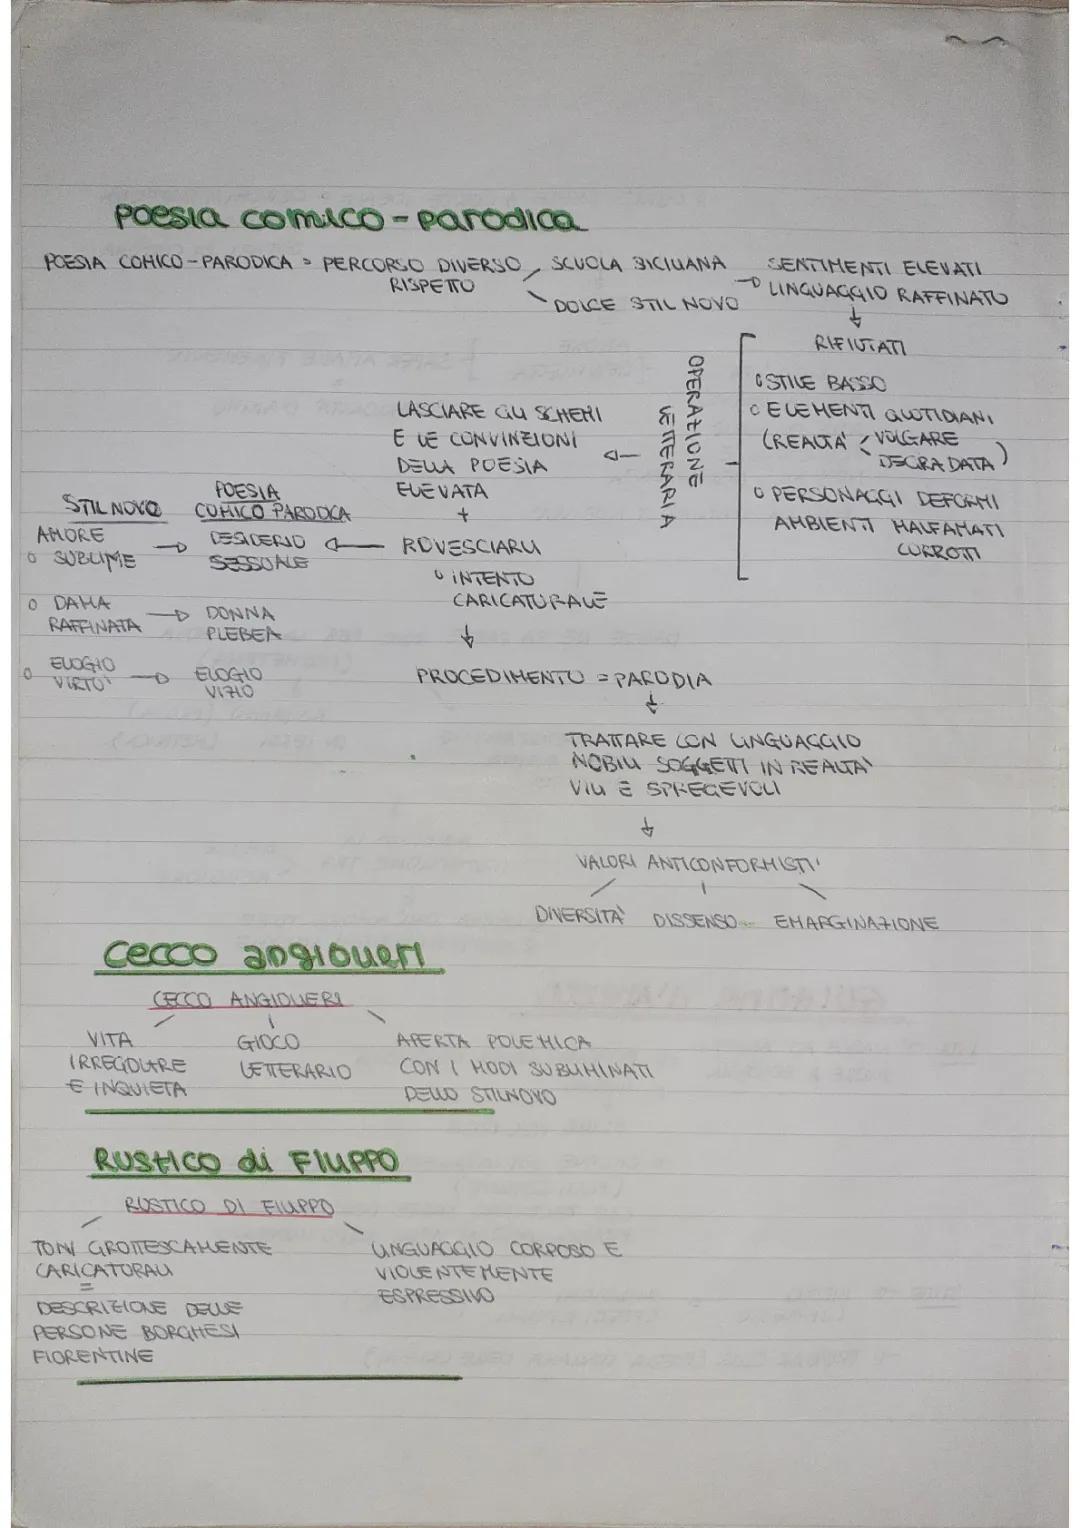 Poesia comico-parodica
POESIA COMICO-PARODICA = PERCORSO DIVERSO RISPETTO
SCUOLA SICILIANA
DOLCE STIL NOVO
SENTIMENTI ELEVATI
LINGUAGGIO RAFFINATO
RIFIUTATI
STILE BASSO
ELEMENTI QUOTIDIANI
(REALTA' VOLGARE
DEGRADATA)
PERSONAGGI DEFORMI
AMBIENTI MALFAMATI
CORROTTI
OPERAZIONE
LETTERARIA
LASCIARE GLI SCHEMI
E LE CONVINZIONI
DELLA POESIA
ELEVATA
+
ROVESCIARLI
INTENTO
CARICATURALE
STIL NOVO
POESIA
COMICO PARODICA
AMORE
SUBLIME
DESIDERIO
SESSUALE
DAMA
RAFFINATA
DONNA
PLEBEA
ELOGIO
VIRTU'
ELOGIO
VIZIO
PROCEDIMENTO = PARODIA
TRATTARE CON LINGUAGGIO
NOBILI SOGGETTI IN REALTA'
VILI E SPREGEVOLI
VALORI ANTICONFORMISTI
DIVERSITA' DISSENSO EMARGINAZIONE
Cecco angiolieri
CECCO ANGIOLIERI
VITA
IRREGOLARE
E INQUIETA
GIOCO
LETTERARIO
APERTA POLEMICA
CON I MODI SUBLIMINATI
DELLO STILNOVO
RUSTICO di FILIPPO
RUSTICO DI FILIPPO
TONI GROTTESCAMENTE
CARICATURALI
=
DESCRIZIONE DELLE
PERSONE BORGHESI
FIORENTINE
LINGUAGGIO CORPOSO E
VIOLENTEMENTE
ESPRESSIVO